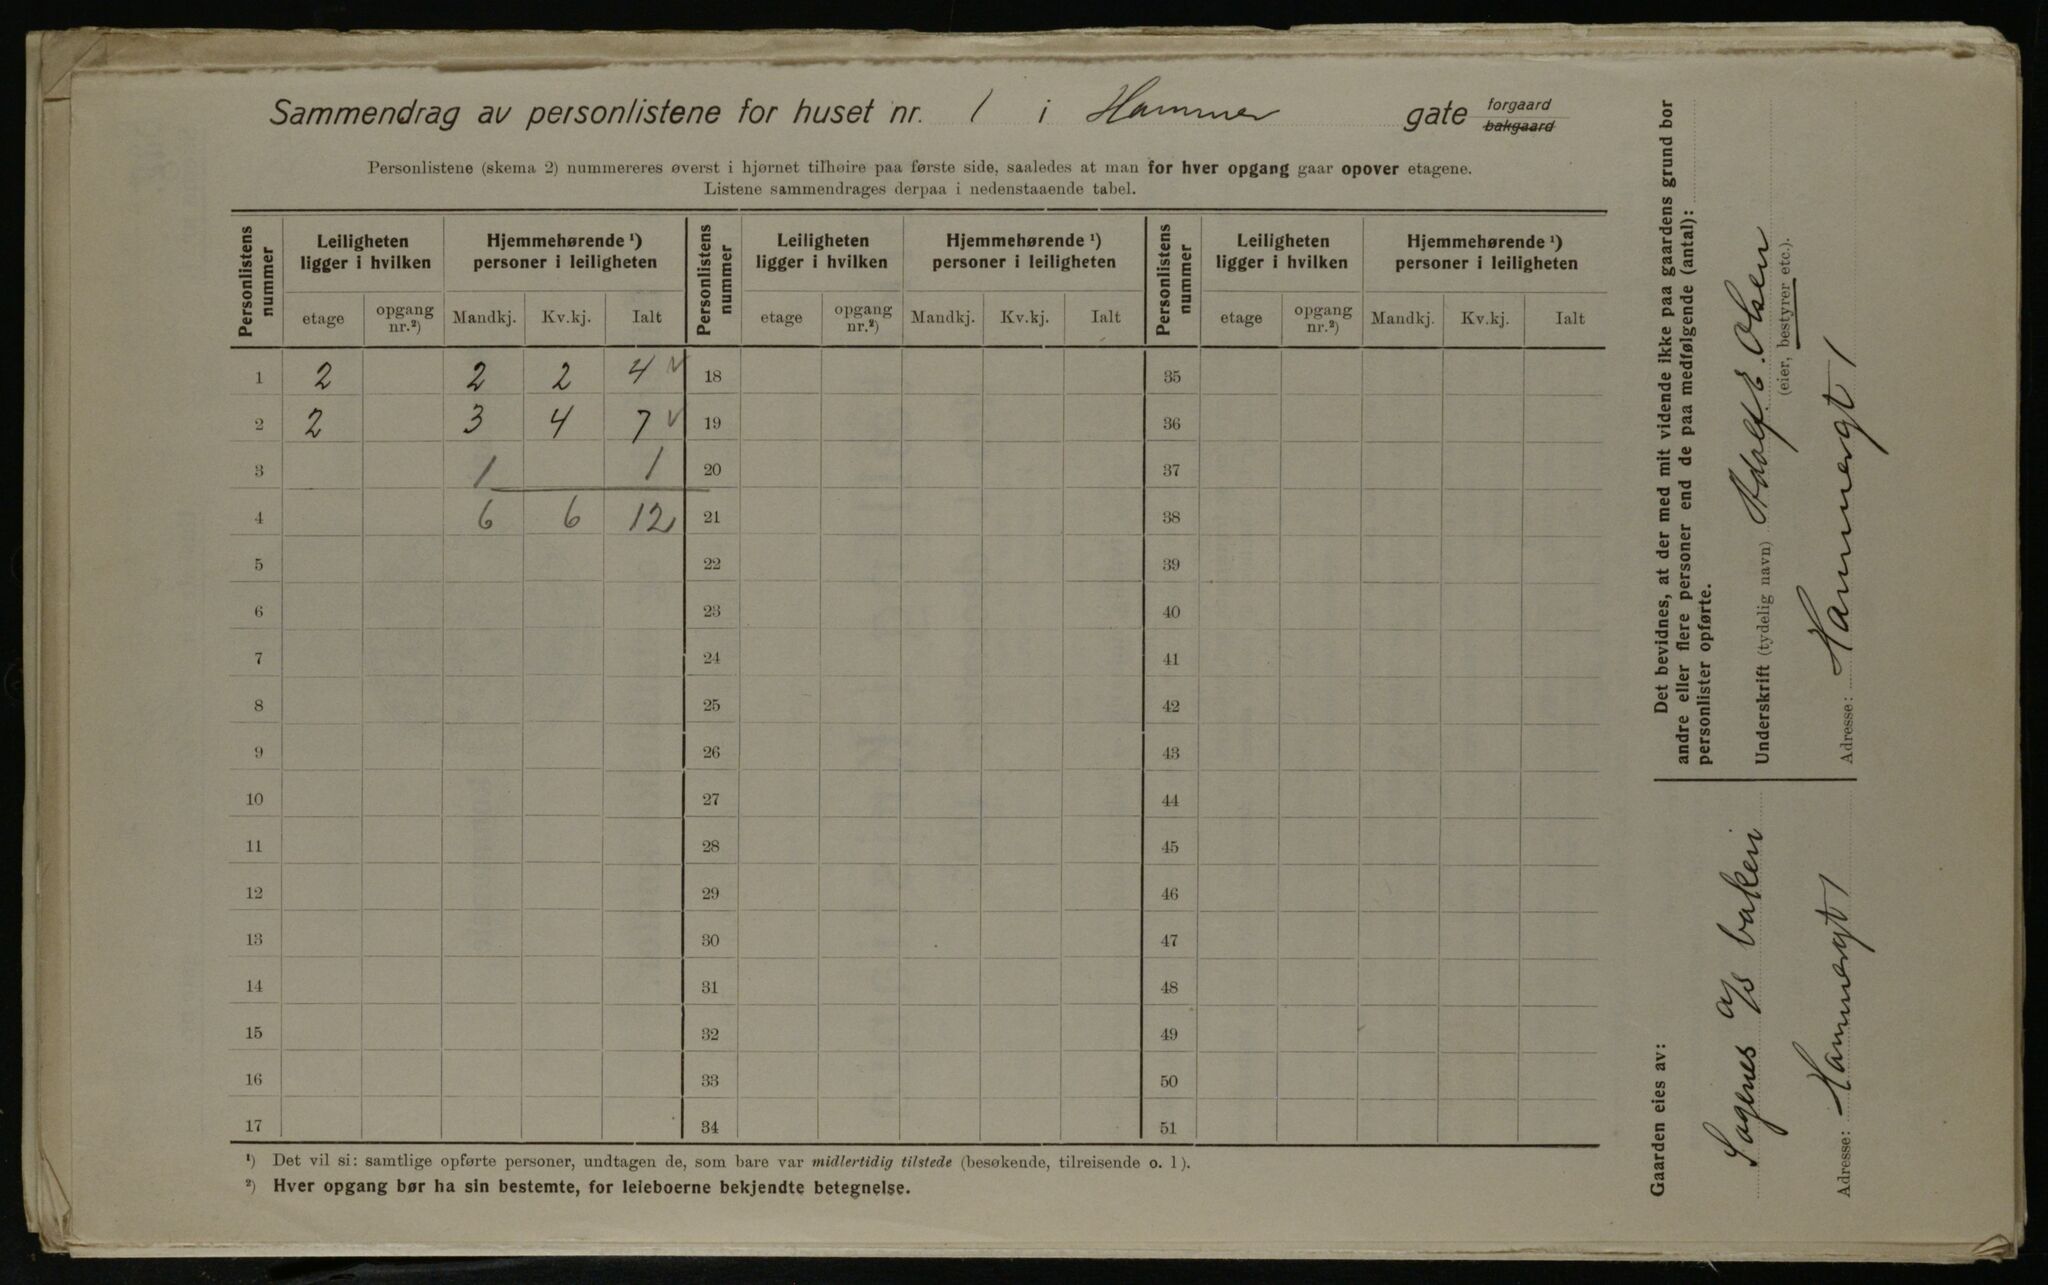 Sammendrag av personlistene for huset nr. 1 i Hammer gate forgaard bakgaard
Personlistene (skema 2) nummereres øverst i hjørnet tilhøire paa første side, saaledes at man for hver opgang gaar opover etagene.
Listene sammendrages derpaa i nedenstaaende tabel.
Personlistens nummer Leiligheten ligger i hvilken Hjemmehørende ¹) personer i leiligheten Personlistens nummer Leiligheten ligger i hvilken Hjemmehørende ¹) personer i leiligheten Personlistens nummer Leiligheten ligger i hvilken Hjemmehørende ¹) personer i leiligheten
etage opgang nr.²) Mandkj. Kv.kj. Ialt etage opgang nr.²) Mandkj. Kv.kj. Ialt etage opgang nr.²) Mandkj. Kv.kj. Ialt
1 2 2 2 4 v 18 35
2 2 3 4 7 v 19 36
3 1 1 20 37
4 6 6 12 21 38
5 22 39
6 23 40
7 24 41
8 25 42
9 26 43
10 27 44
11 28 45
12 29 46
13 30 47
14 31 48
15 32 49
16 33 50
17 34 51
¹) Det vil si: samtlige opførte personer, undtagen de, som bare var midlertidig tilstede (besøkende, tilreisende o. l).
²) Hver opgang bør ha sin bestemte, for leieboerne bekjendte betegnelse.
Det bevidnes, at der med mit vidende ikke paa gaardens grund bor
andre eller flere personer end de paa medfølgende (antal):
personlister opførte.
Underskrift (tydelig navn) Adolf E. Olsen
(eier, bestyrer etc.).
Adresse: Hammergt 1
Gaarden eies av:
Sagenes a/s bakeri
Adresse: Hammergt 1